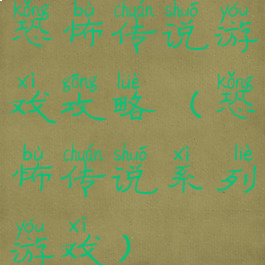 kǒng bù chuán shuō yóu
恐怖传说游
xì gōng lüè kǒng
戏攻略（恐
bù chuán shuō xì liè
怖传说系列
yóu xì
游戏）